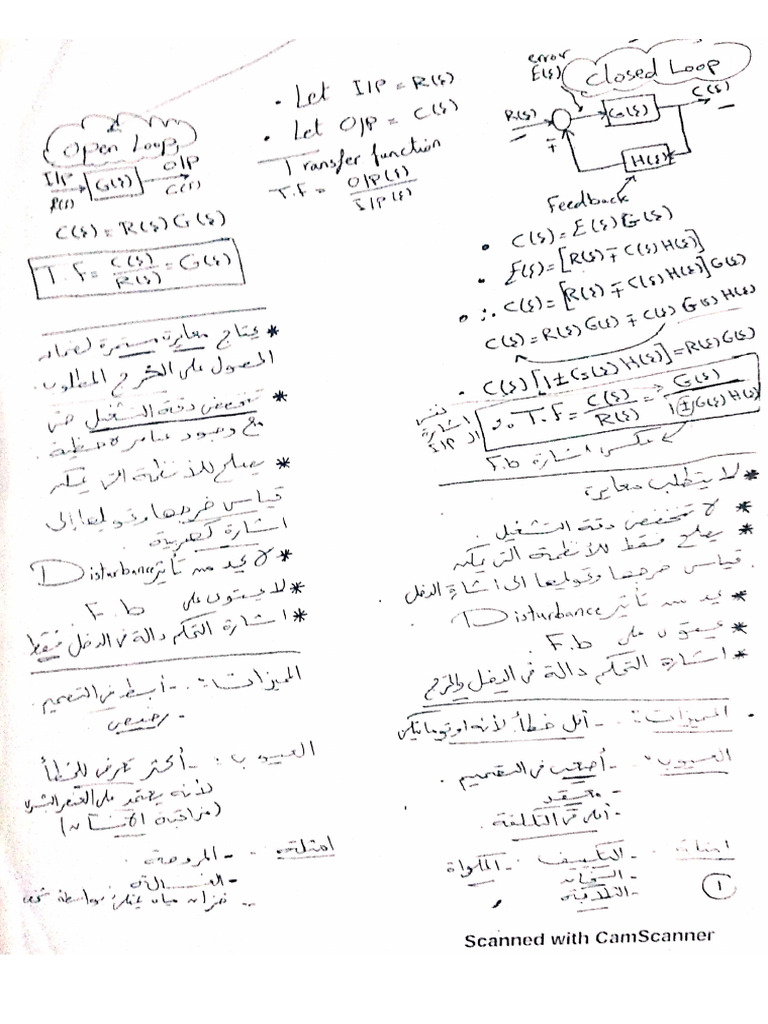 Open Loop
I/P
R(s)
G(s)
O/P
C(s)
C(s) = R(s) G(s)
T.F = C(s)/R(s) = G(s)
• Let I/P = R(s)
• Let O/P = C(s)
Transfer function
T.F = O/P(s)/I/P(s)
error
E(s)
Closed Loop
R(s)
G(s)
C(s)
∓
H(s)
Feedback
• C(s) = E(s) G(s)
• E(s) = [R(s) ∓ C(s) H(s)]
• ∴ C(s) = [R(s) ∓ C(s) H(s)] G(s)
C(s) = R(s) G(s) ∓ C(s) G(s) H(s)
• C(s) [1 ± G(s) H(s)] = R(s) G(s)
∴ T.F = C(s)/R(s) = G(s)/1 ± G(s) H(s)
نفس اشارة الـ I/P
عكس اشارة F.b
* يحتاج معايرة مستمرة لضمان
الحصول على الخرج المطلوب.
* تنخفض دقة التشغيل حتى
مع وجود عناصر
* يصلح للأنظمة التي يمكن
قياس خرجها وتحويلها إلى
اشارة كهربية
* لا يحد من تأثير Disturbance
* لا يحتوى على F.b
* اشارة التحكم دالة في الدخل فقط
المميزات: - أبسط في التصميم
- رخيص
العيوب: - أكثر تعرض للخطأ
لأنه يعتمد على العنصر البشرى
(مراقبة الانسان)
امثلة: - المروحة
- الغسالة
* لا يتطلب معايرة
* لا تنخفض دقة التشغيل.
* يصلح فقط للأنظمة التي يمكن
قياس خرجها وتحويلها الى اشارة الدخل
* يحد من تأثير Disturbance
* يحتوى على F.b
* اشارة التحكم دالة في الدخل والخرج
• المميزات: - أقل خطأ لأنه اوتوماتيكى
العيوب: - أصعب في التصميم
- معقد
- أعلى في التكلفة.
امثلة: - التكييف - المكواة
- السخان
- الثلاجة
1
Scanned with CamScanner